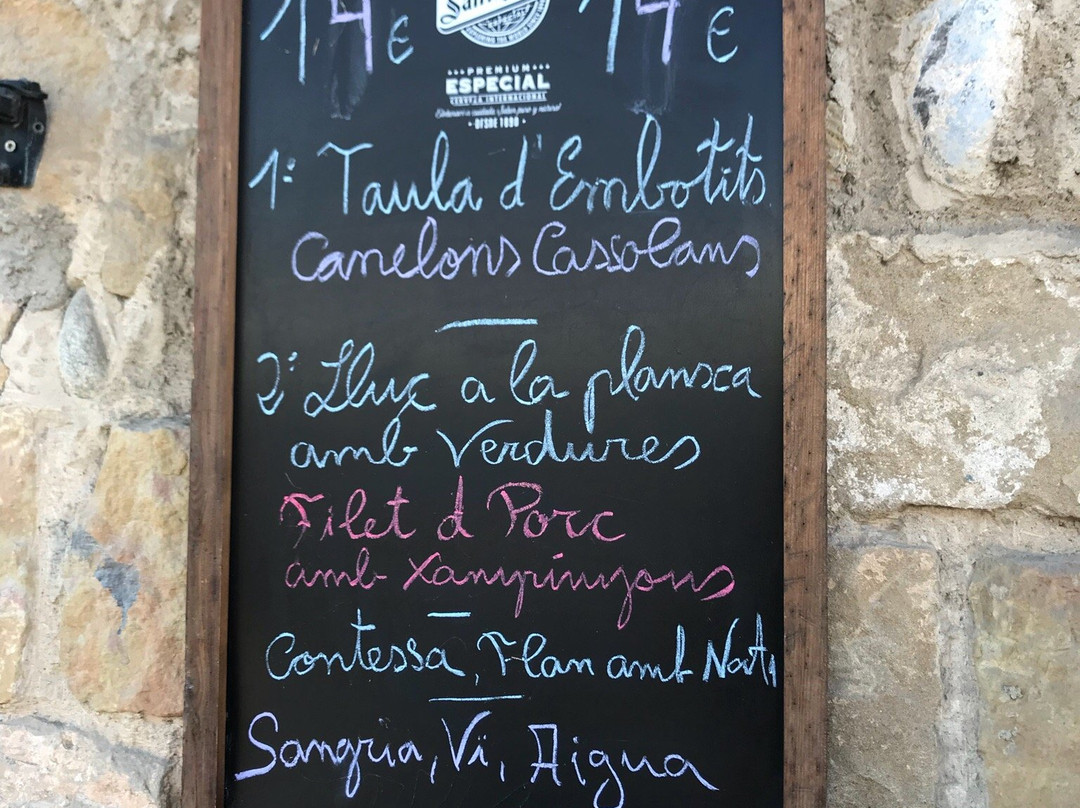 14 € 14 €
San
PREMIUM
ESPECIAL
CERVEZA INTERNACIONAL
DESDE 1890
1º Taula d'Embotits
Canelons Casolans
2º Lluç a la planxa
amb Verdures
Filet d Porc
amb Xanpinyons
Contessa, Flan amb Nata
Sangria, Vi, Aigua